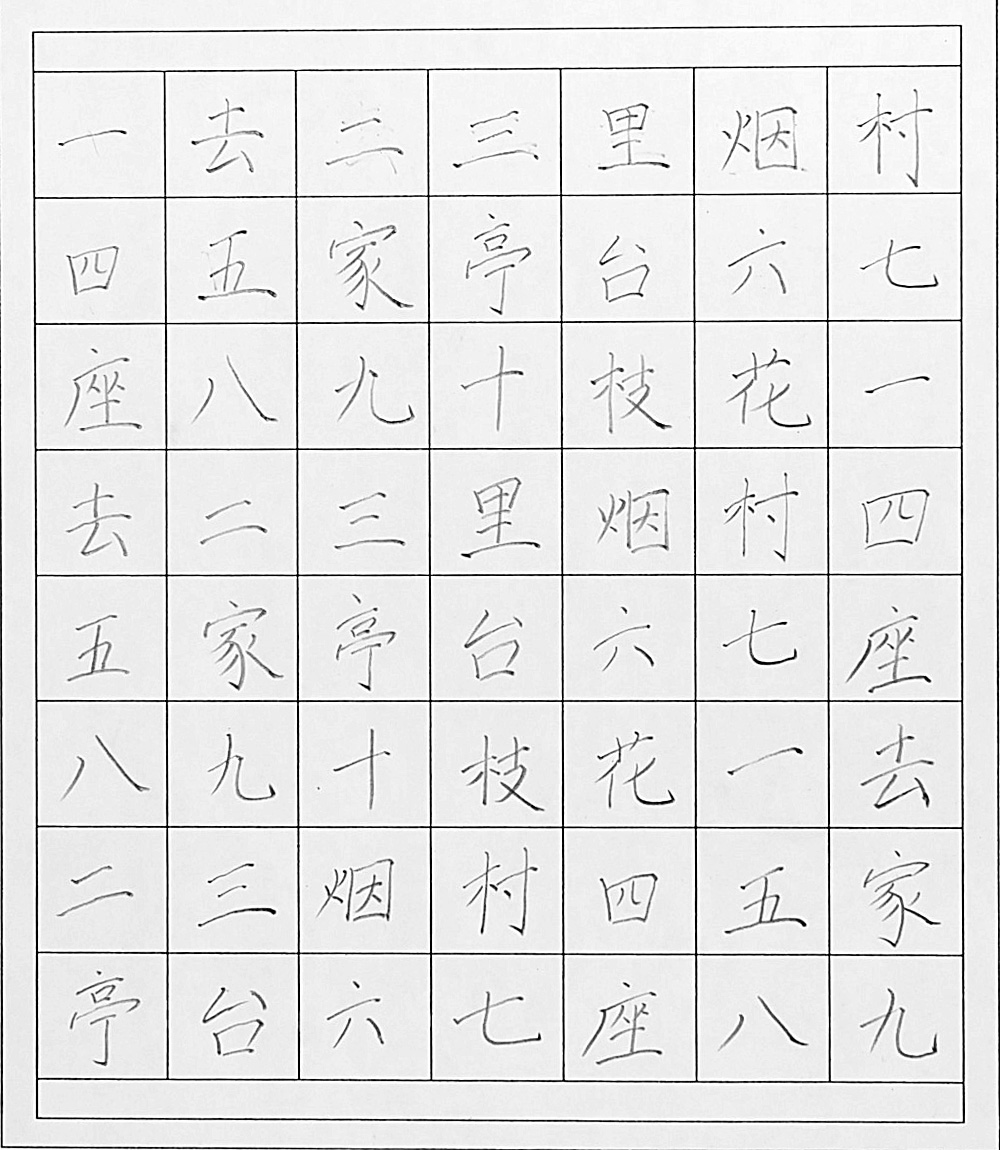 一去二三里烟村
四五家亭台六七
座八九十枝花一
去二三里烟村四
五家亭台六七座
八九十枝花一去
二三烟村四五家
亭台六七座八九